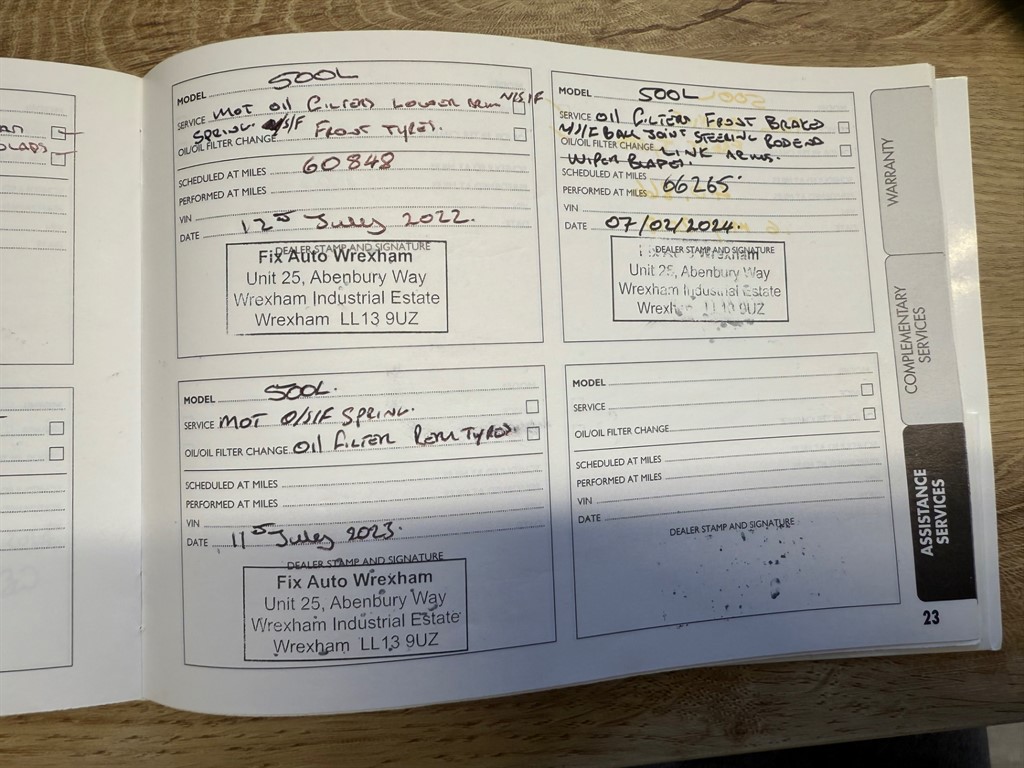 MODEL 500L
SERVICE MOT OIL FILTERS LOWER ARM N/S/F
SPRING O/S/F FRONT TYRES.
OIL/OIL FILTER CHANGE
SCHEDULED AT MILES 60848
PERFORMED AT MILES
VIN
DATE 12th July 2022.
DEALER STAMP AND SIGNATURE
Fix Auto Wrexham
Unit 25, Abenbury Way
Wrexham Industrial Estate
Wrexham LL13 9UZ
MODEL 500L
SERVICE OIL FILTERS FRONT BRAKES
N/S/F BALL JOINT STEERING ROD END
OIL/OIL FILTER CHANGE LINK ARMS.
WIPER BLADES.
SCHEDULED AT MILES
PERFORMED AT MILES 66265
VIN
DATE 07/02/2024.
DEALER STAMP AND SIGNATURE
Fix Auto Wrexham
Unit 25, Abenbury Way
Wrexham Industrial Estate
Wrexham LL13 9UZ
MODEL 500L.
SERVICE MOT O/S/F SPRING.
OIL/OIL FILTER CHANGE OIL FILTER REAR TYRES.
SCHEDULED AT MILES
PERFORMED AT MILES
VIN
DATE 11th July 2023.
DEALER STAMP AND SIGNATURE
Fix Auto Wrexham
Unit 25, Abenbury Way
Wrexham Industrial Estate
Wrexham LL13 9UZ
MODEL
SERVICE
OIL/OIL FILTER CHANGE
SCHEDULED AT MILES
PERFORMED AT MILES
VIN
DATE
DEALER STAMP AND SIGNATURE
WARRANTY
COMPLEMENTARY
SERVICES
ASSISTANCE
SERVICES
23